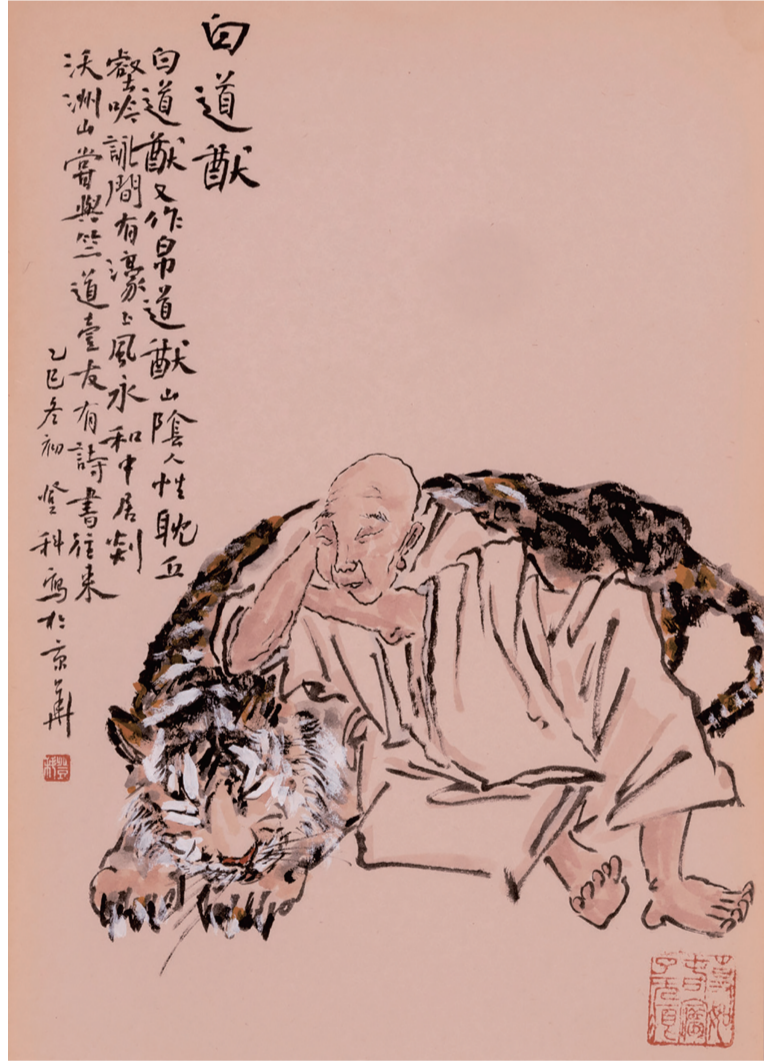 白道猷
白道猷又作帛道猷山陰人性耽丘
壑吟詠間有濠上風永和中居剡
沃洲山嘗與竺道壹友有詩書往来
乙巳冬初登科寫於京華
登科